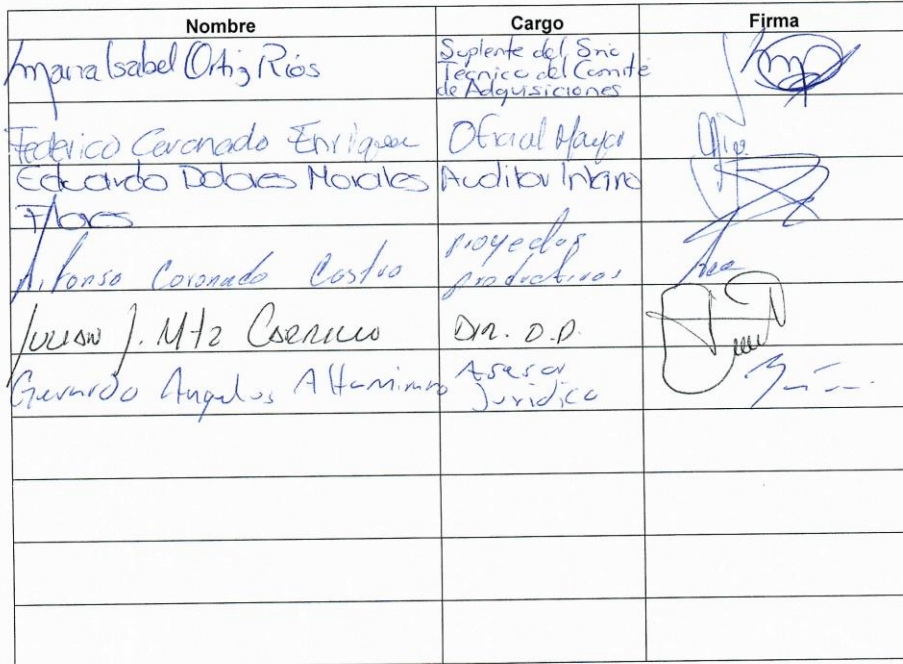 Nombre Cargo Firma
Maria Isabel Ortiz Ríos
Suplente del Srio
Técnico del Comité
de Adquisiciones
Federico Coronado Enriquez Oficial Mayor
Eduardo Dolores Morales Auditor Interno
Flores
Alfonso Coronado Castro
proyectos
productivos
Julian J. Mtz Carrillo Dir. O.P.
Gerardo Angeles Altamirano
Asesor
Jurídico